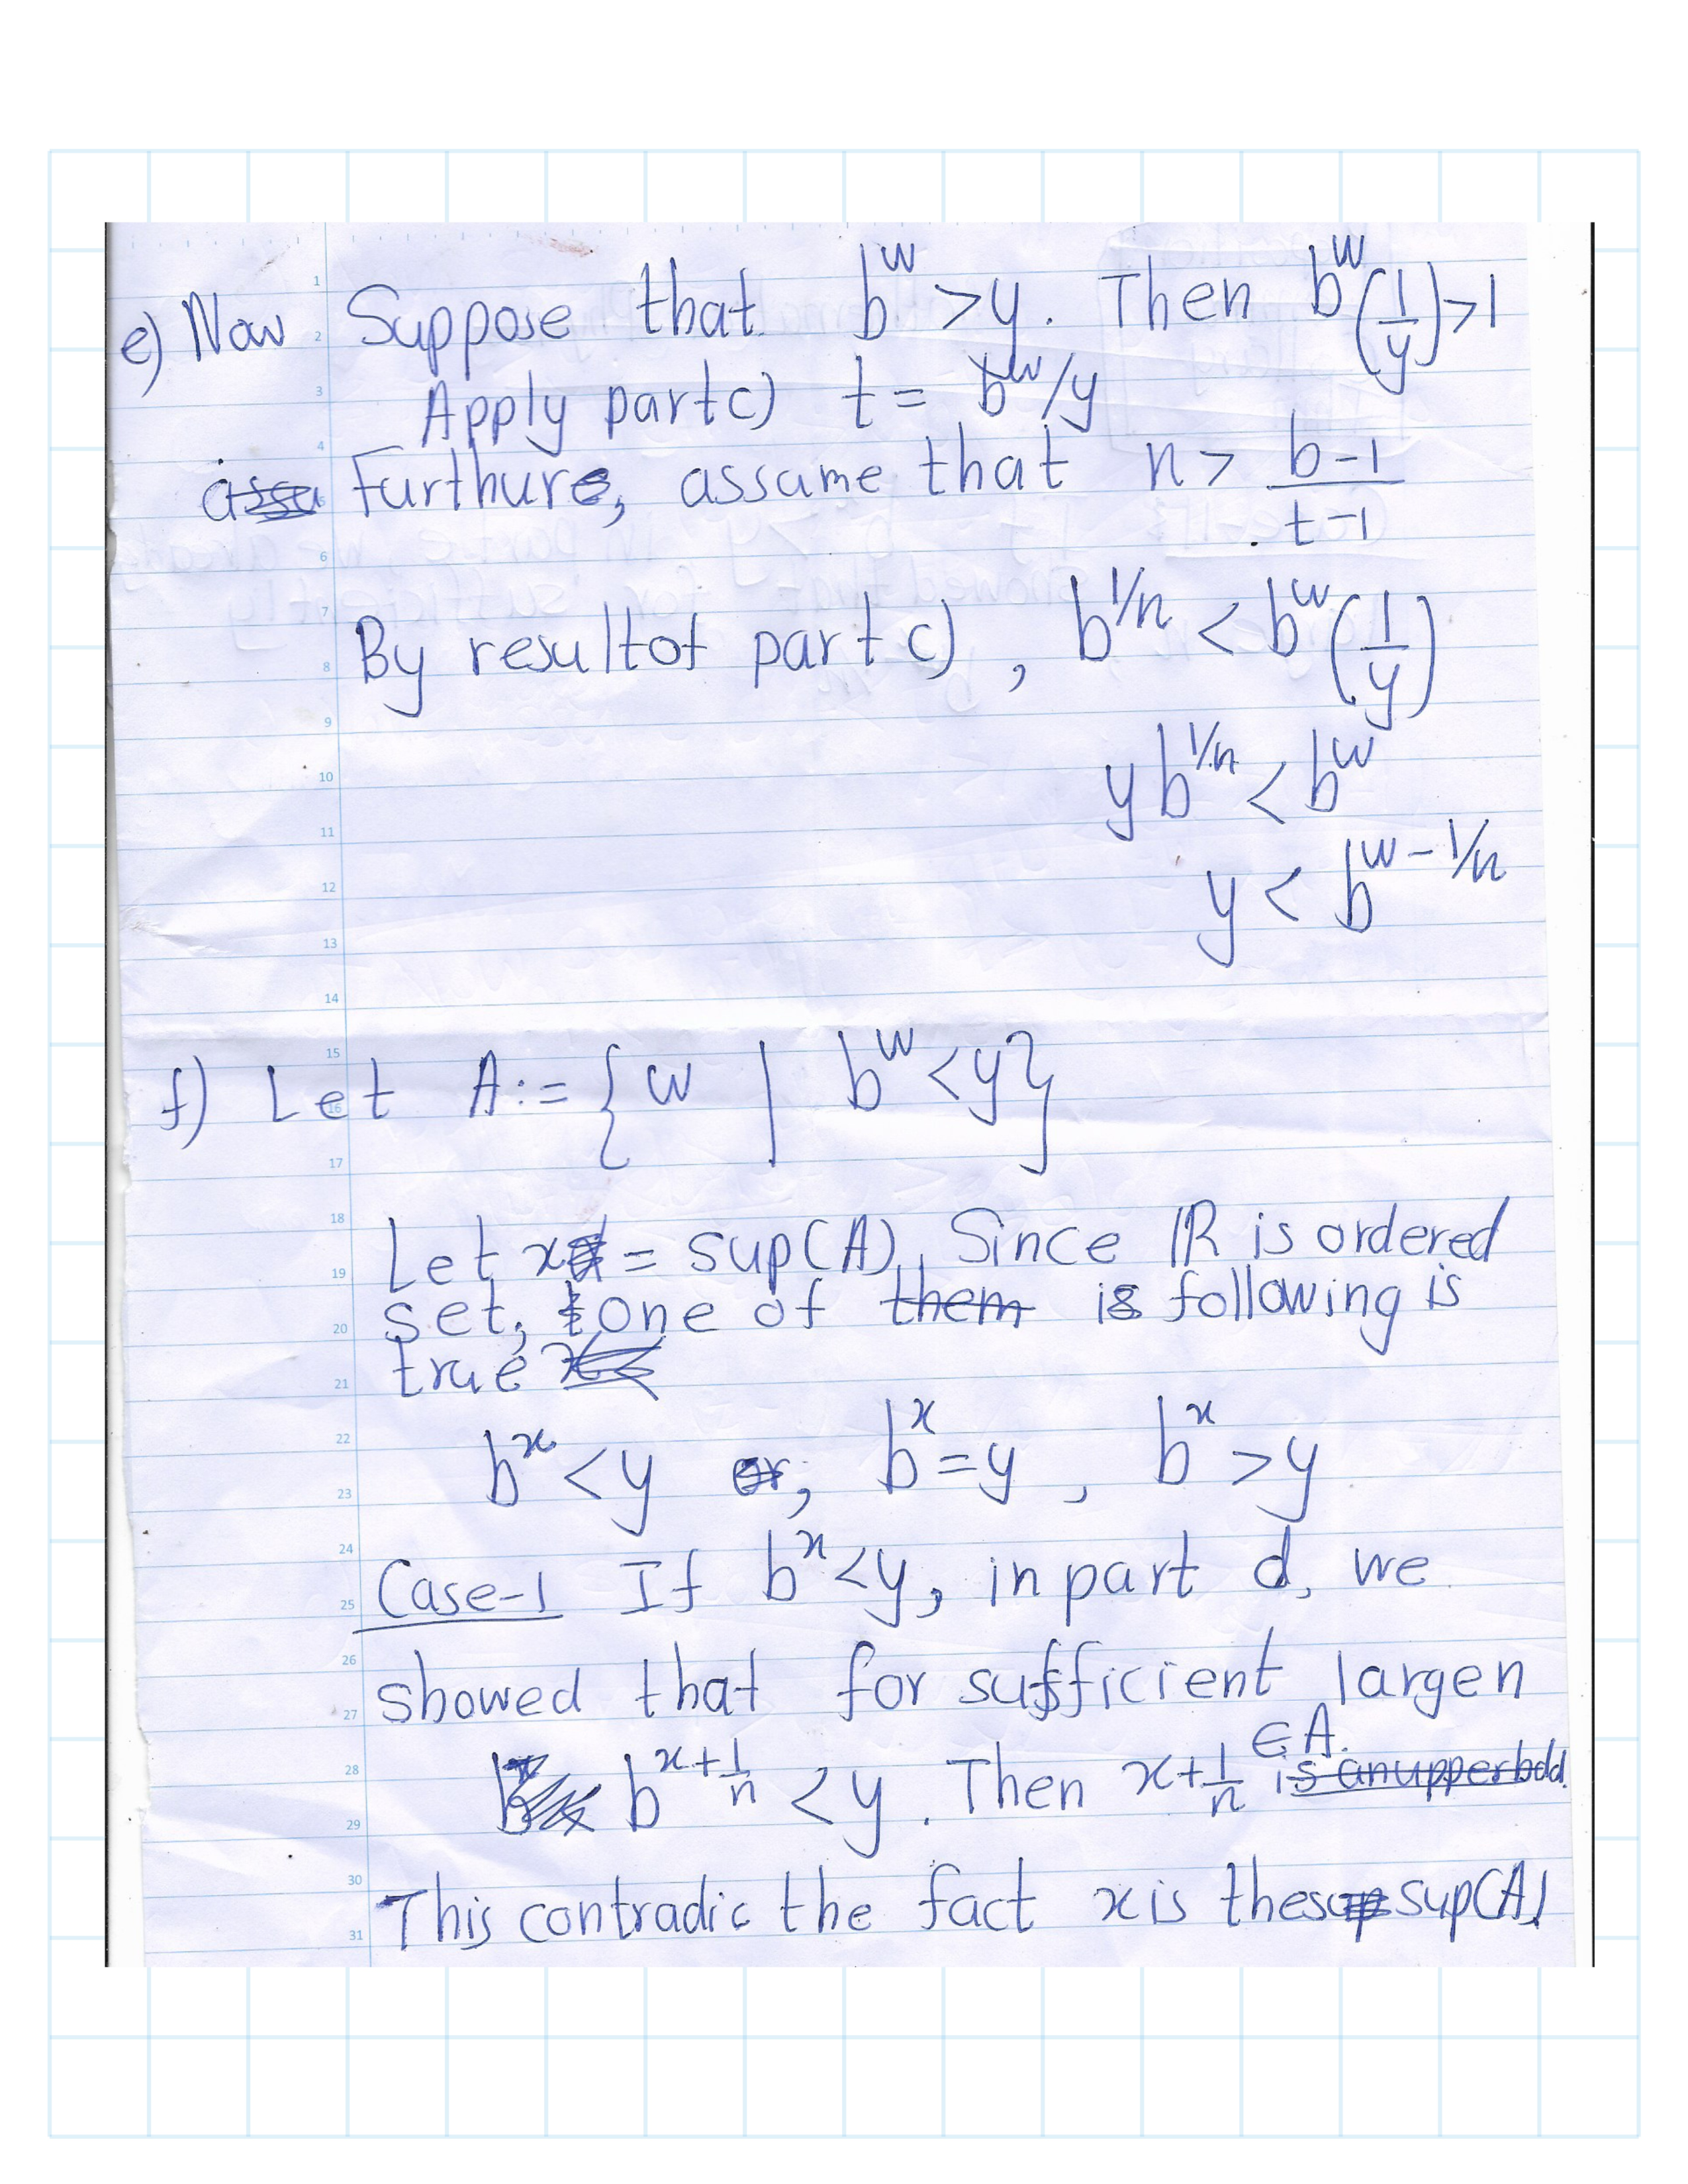 e) Now Suppose that b^w > y. Then b^w (1/y) > 1
Apply part c) t = b^w/y
Furthure, assume that n > (b-1)/(t-1)
By resultof part c), b^{1/n} < b^w (1/y)
y b^{1/n} < b^w
y < b^{w - 1/n}
f) Let A := {w | b^w < y}
Let x = sup(A), Since IR is ordered
set, one of following is
true
b^x < y , b^x = y , b^x > y
Case-1 If b^x < y, in part d, we
showed that for sufficient large n
b^{x + 1/n} < y. Then x + 1/n ∈ A.
This contradic the fact x is the sup(A)
1
2
3
4
5
6
7
8
9
10
11
12
13
14
15
16
17
18
19
20
21
22
23
24
25
26
27
28
29
30
31